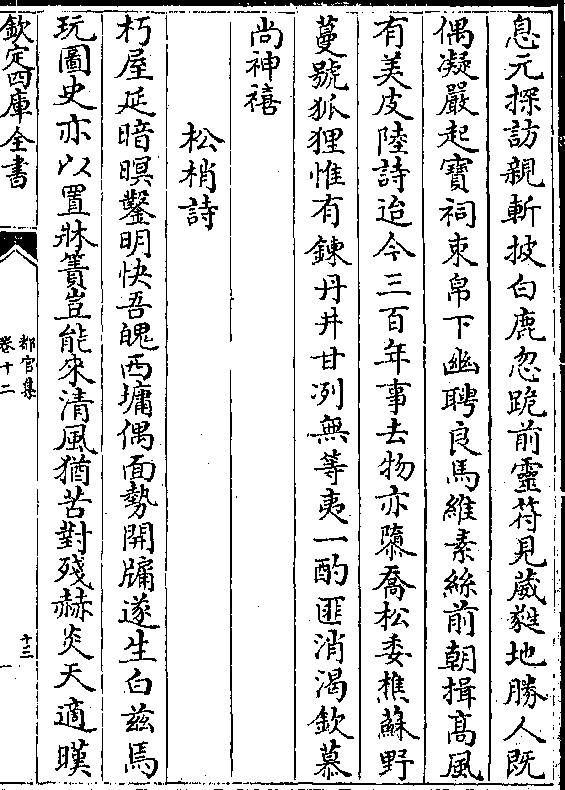 息元探訪親斬披白鹿忽跪前靈苻見葳蕤地勝人既
偶凝嚴起寳祠束帛下幽聘良馬維素絲前朝揖高風
有美皮陸詩迨今三百年事去物亦隳喬松委樵蘇野
蔓號狐狸惟有鍊丹井甘冽無等夷一酌匪消渴欽慕
尚神禧
松梢詩
朽屋延暗暝鑿明快吾魄西墉偶面勢開牖遂生白兹焉
玩圖史亦以置牀簀豈能來清風猶苦對殘赫炎天適暵
欽定四庫全書
都官集
卷十二
十三